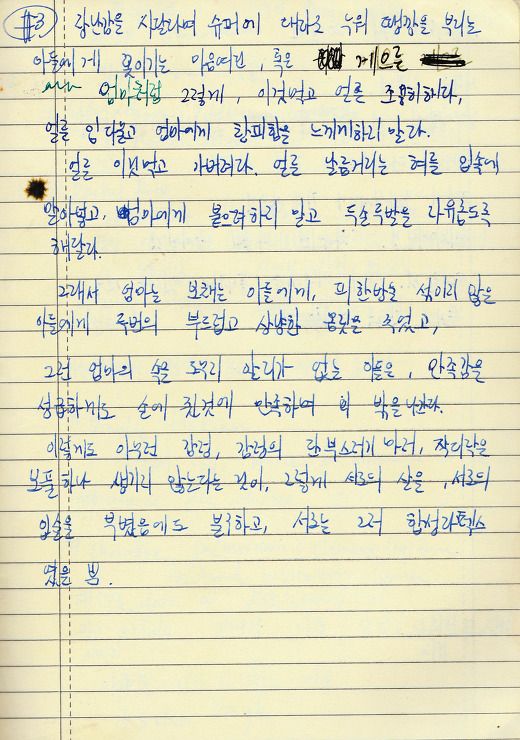 #3 장난감을 사달라며 슈퍼에 대자로 누워 땡깡을 부리는
아들에게 못이기는 마음여린, 혹은 게으른
엄마처럼 그렇게, 이것먹고 얼른 조용히하라,
얼른 입다물고 엄마에게 창피함을 느끼게하지 말라.
얼른 이것먹고 가버려라. 얼른 날름거리는 혀를 입속에
말아넣고, 엄마에게 붙으려하지 말고 두손두발을 자유롭도록
해달라.
그래서 엄마는 보채는 아들에게, 피 한방울 섞이지 않은
아들에게 두번의 부드럽고 상냥한 몸짓을 주었고,
그런 엄마의 속을 도무지 알리가 없는 아들은, 만족감을
성급하게도 손에 쥔것에 만족하며 휙 밖을 나간다.
이렇게도 아무런 감정, 감정의 찌부스러기 마저, 짝다락을
보풀하나 생기지 않는다는 것이, 그렇게 서로의 살을, 서로의
입술을 부볐음에도 불구하고, 서로는 그저 합성라텍스
였을 뿐.